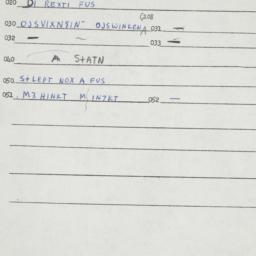 020 DI REXTI FUS
(208
030 OJSVIXN8IN OJSWINKENA 031 —
032 — ~ 033 —
040 A S+ATN
050 S+LEPT NOX A FUS
051. M3HINKT M(IN7KT 052 —